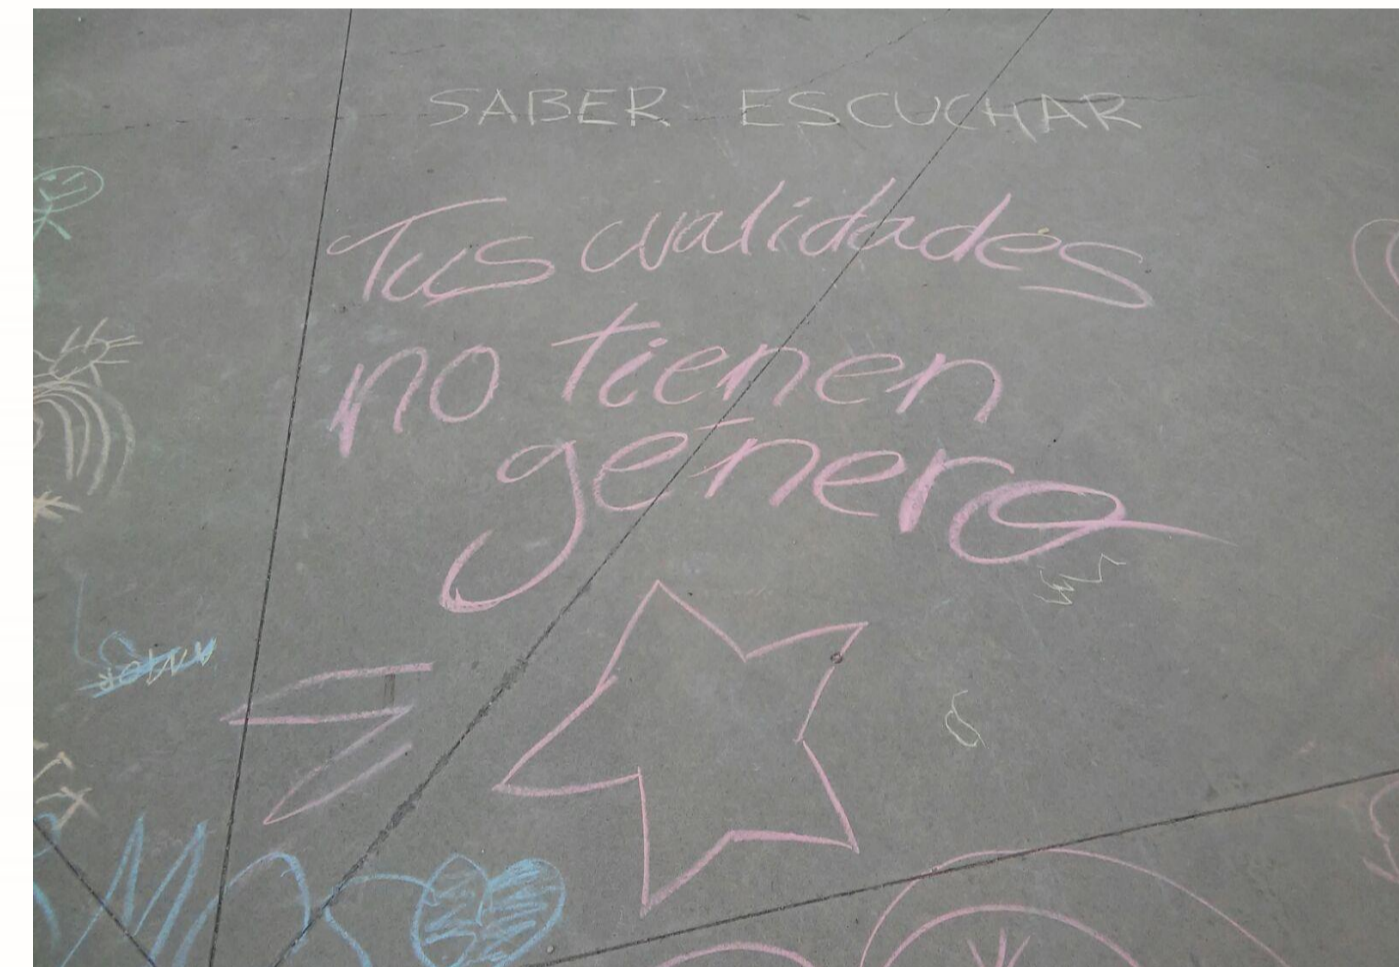 SABER ESCUCHAR
Tus cualidades
no tienen
género